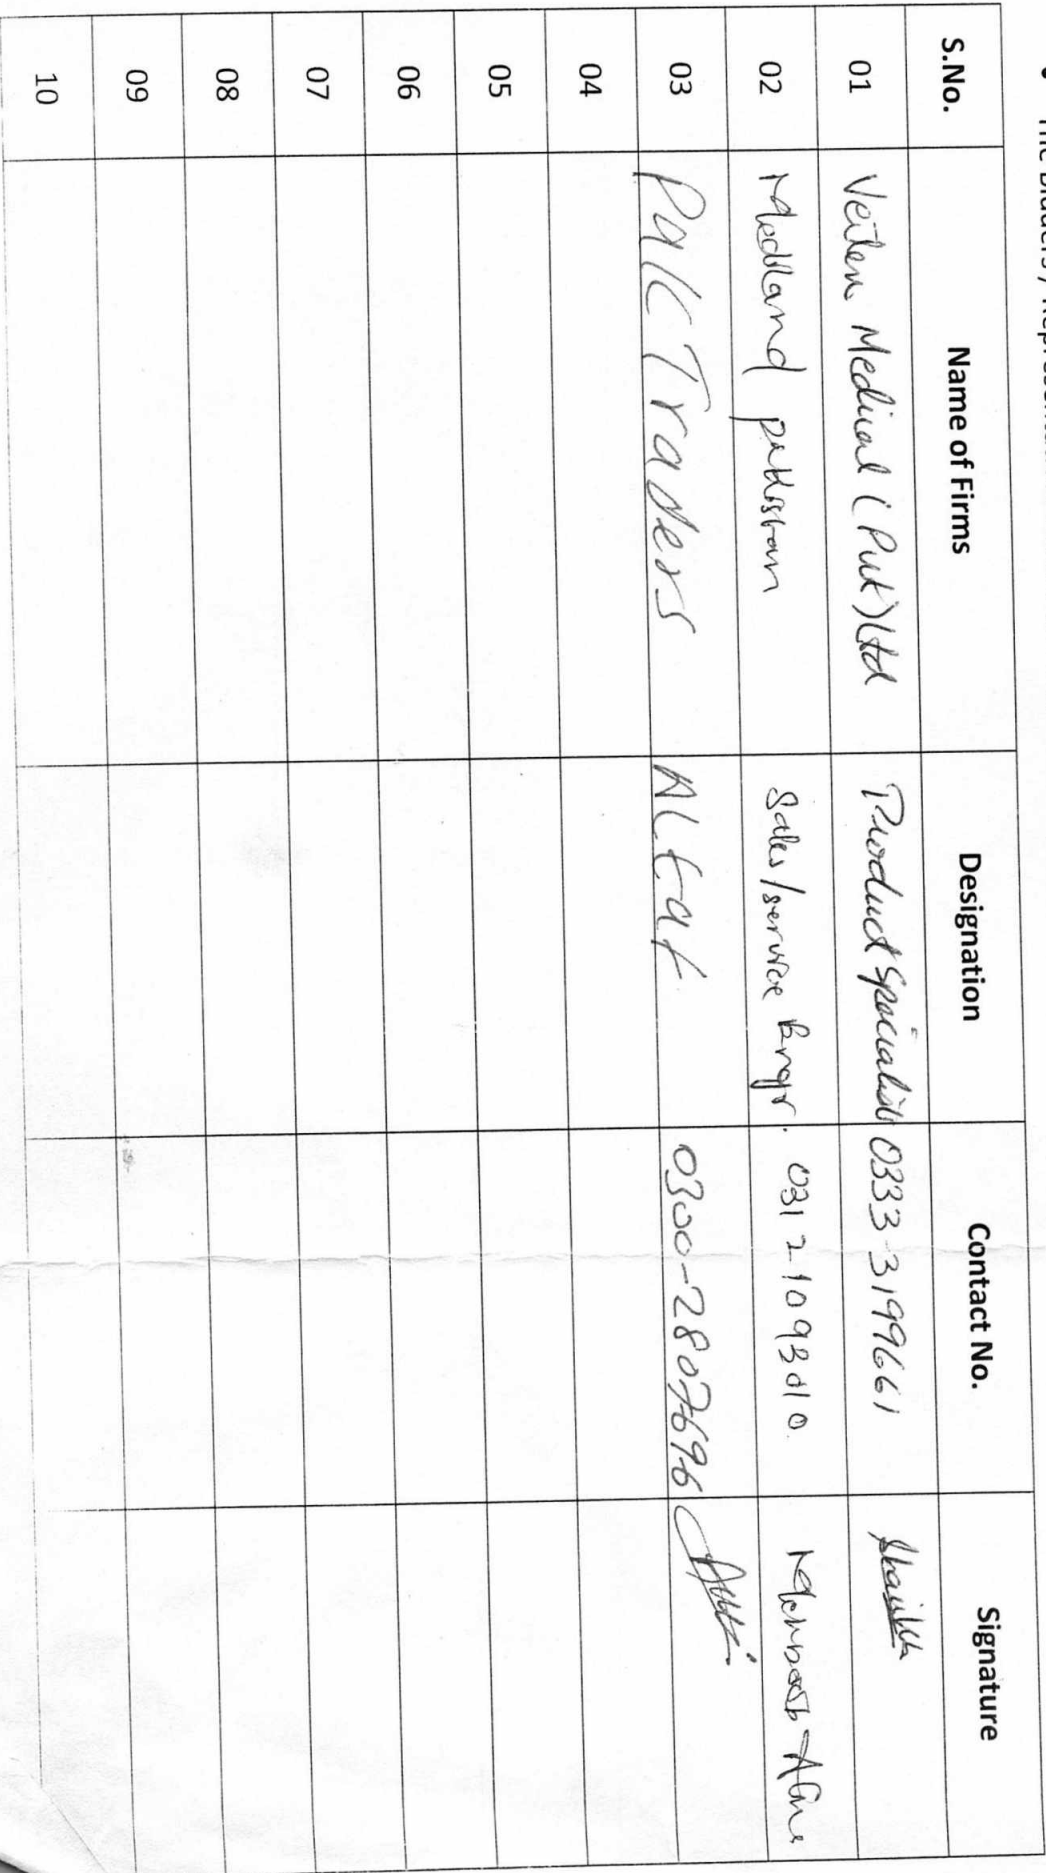 The Bidders / Represen
S.No. Name of Firms Designation Contact No. Signature
01 Medical (Pvt) Ltd Product Specialist 0333-3199661
02 Mediland pakistan Sales/service Engr. 0312-1093010
03 PAK Traders ALtaf 0300-2807696
04
05
06
07
08
09
10